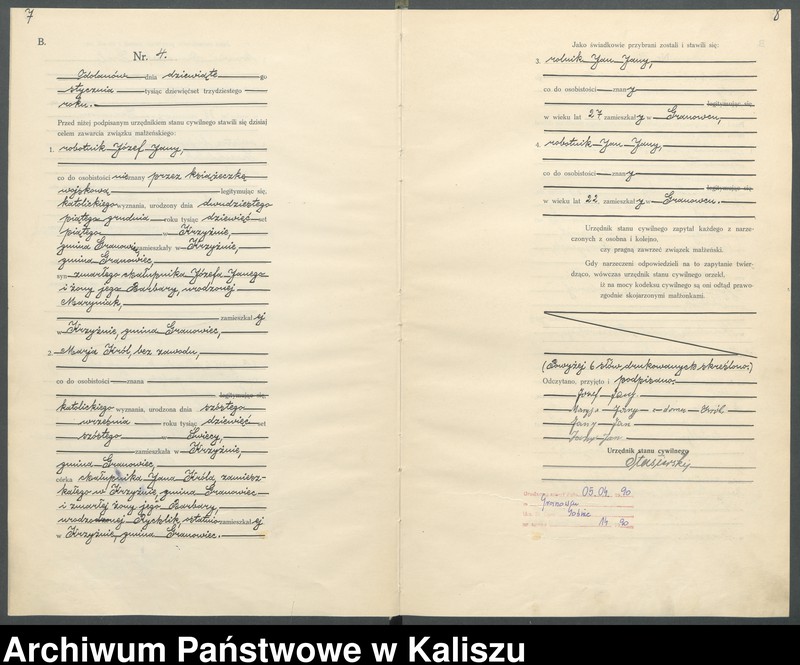 7
B.
Nr. 4.
Odolanów dnia dziewiąte go
stycznia tysiąc dziewięćset trzydziestego
roku.
Przed niżej podpisanym urzędnikiem stanu cywilnego stawili się dzisiaj
celem zawarcia związku małżeńskiego:
1. robotnik Józef Jany,
co do osobistości nieznany przez książeczkę
wojskową legitymując się,
katolickiego wyznania, urodzony dnia dwudziestego
piątego grudnia roku tysiąc dziewięć set
piątego w Krzyżnie,
gmina Granowiec, zamieszkały w Krzyżnie,
gmina Granowiec,
syn zmarłego chałupnika Józefa Janego
i żony jego Barbary, urodzonej
Maryniak,
zamieszkał ej
w Krzyżnie, gmina Granowiec,
2. Marja Król, bez zawodu,
co do osobistości znana
legitymując się,
katolickiego wyznania, urodzona dnia szóstego
września roku tysiąc dziewięć set
szóstego w Świecy,
zamieszkała w Krzyżnie,
gmina Granowiec,
córka chałupnika Jana Króla, zamiesz-
kałego w Krzyżnie, gmina Granowiec
i zmarłej żony jego Barbary,
urodzonej Rychlik, ostatnio zamieszkał ej
w Krzyżnie, gmina Granowiec.
8
Jako świadkowie przybrani zostali i stawili się:
3. rolnik Jan Jany,
co do osobistości znan y
legitymując się,
w wieku lat 27 zamieszkał y w Granowcu,
4. robotnik Jan Jany,
co do osobistości znan y
legitymując się,
w wieku lat 22 zamieszkał y w Granowcu.
Urzędnik stanu cywilnego zapytał każdego z narze-
czonych z osobna i kolejno,
czy pragną zawrzeć związek małżeński.
Gdy narzeczeni odpowiedzieli na to zapytanie twier-
dząco, wówczas urzędnik stanu cywilnego orzekł,
iż na mocy kodeksu cywilnego są oni odtąd prawo-
zgodnie skojarzonymi małżonkami.
(Powyżej 6 słów drukowanych skreślono.)
Odczytano, przyjęto i podpisano:
Józef Jany
Maryja Jany z domu Król
Jany Jan
Jany Jan
Urzędnik stanu cywilnego
05.04 90
14 90
Archiwum Państwowe w Kaliszu